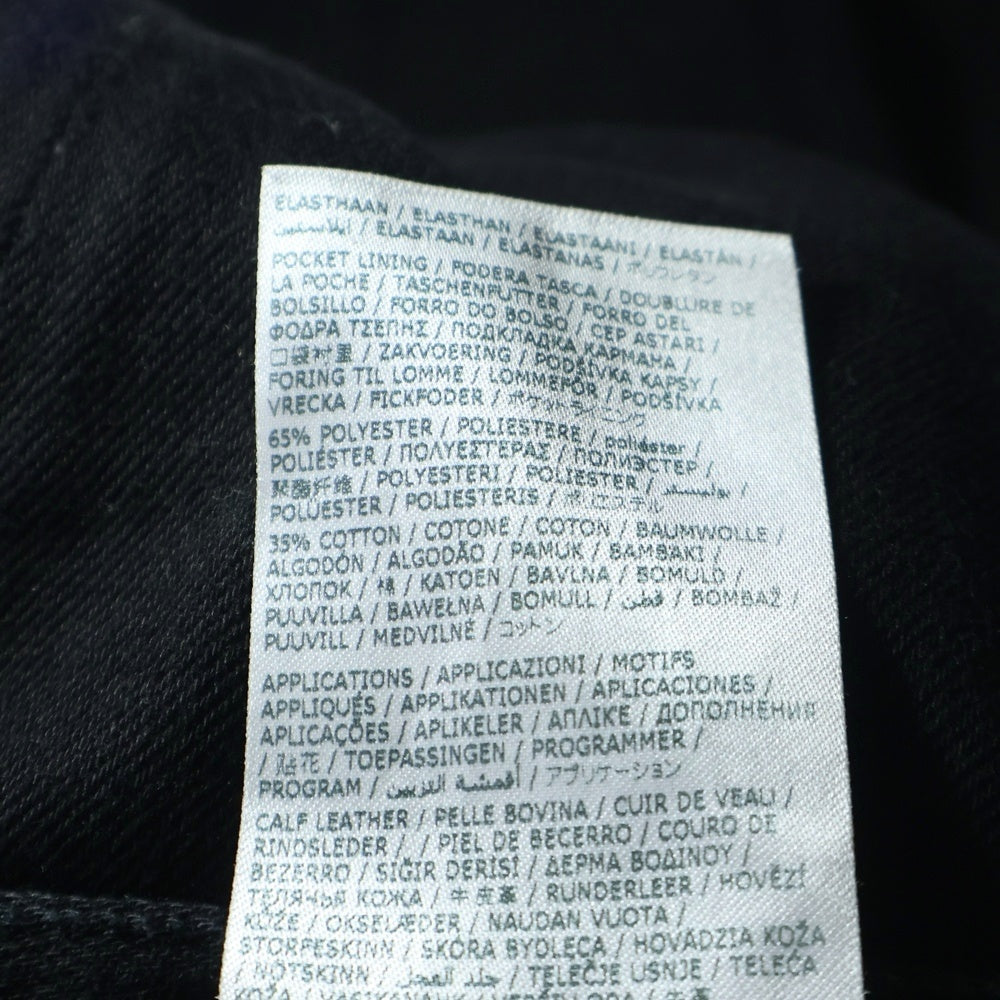 ELASTHAAN / ELASTHAN / ELASTAANI / ELASTÁN /
ايلاستين / ELASTAAN / ELASTANAS / ポリウレタン
POCKET LINING / FODERA TASCA / DOUBLURE DE
LA POCHE / TASCHENFUTTER / FORRO DEL
BOLSILLO / FORRO DO BOLSO / CEP ASTARI /
ΦΟΔΡΑ ΤΣΕΠΗΣ / ПОДКЛАДКА КАРМАНА /
口袋衬里 / ZAKVOERING / PODŠÍVKA KAPSY /
FORING TIL LOMME / LOMMEFÔR / PODŠÍVKA
VRECKA / FICKFODER / ポケットライニング
65% POLYESTER / POLIESTERE / poliéster /
POLIÉSTER / ΠΟΛΥΕΣΤΕΡΑΣ / ПОЛИЭСТЕР /
聚酯纤维 / POLYESTERI / POLIESTER / بوليستر /
POLÜESTER / POLIESTERIS / ポリエステル
35% COTTON / COTONE / COTON / BAUMWOLLE /
ALGODÓN / ALGODÃO / PAMUK / ΒΑΜΒΑΚΙ /
ХЛОПОК / 棉 / KATOEN / BAVLNA / BOMULD /
PUUVILLA / BAWEŁNA / BOMULL / قطن / BOMBAŽ /
PUUVILL / MEDVILNĖ / コットン
APPLICATIONS / APPLICAZIONI / MOTIFS
APPLIQUÉS / APPLIKATIONEN / APLICACIONES /
APLICAÇÕES / APLIKELER / ΑΠΛΙΚΕ / ДОПОЛНЕНИЯ
/ 贴花 / TOEPASSINGEN / PROGRAMMER /
PROGRAM / أقمشة التزيين / アプリケーション
CALF LEATHER / PELLE BOVINA / CUIR DE VEAU /
RINDSLEDER / / PIEL DE BECERRO / COURO DE
BEZERRO / SIĞIR DERİSİ / ΔΕΡΜΑ ΒΟΔΙΝΟΥ /
ТЕЛЯЧЬЯ КОЖА / 牛皮革 / RUNDERLEER / HOVĚZÍ
KŮŽE / OKSELÆDER / NAUDAN VUOTA /
STORFESKINN / SKÓRA BYDLĘCA / HOVÄDZIA KOŽA
/ NÖTSKINN / جلد العجل / TELEČJE USNJE / TELEĆA
KOŽA